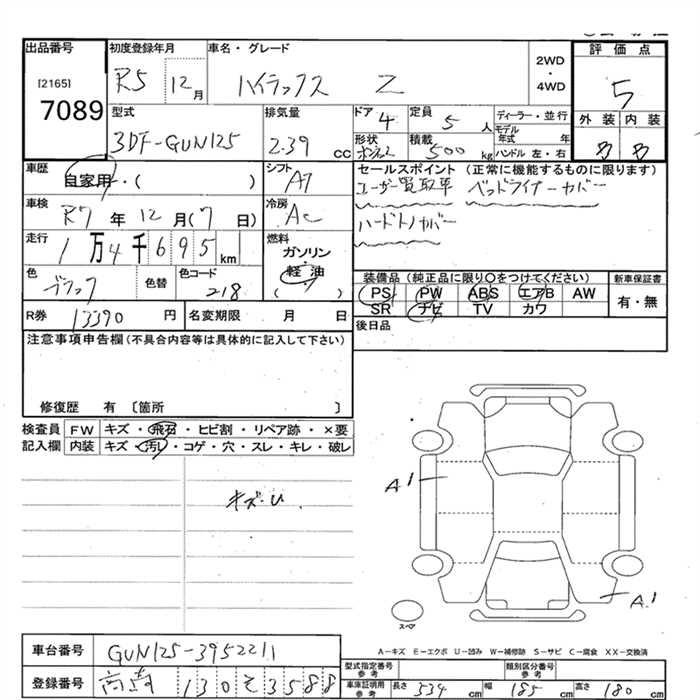 出品番号
[2165]
7089
初度登録年月
R5 12月
車名・グレード
ハイラックス Z
2WD
・
4WD
評価点
5
外装 内装
B B
型式
3DF-GUN125
排気量
2.39 CC
ドア 4
定員 5 人
形状 ボンネット
積載 500 kg
ディーラー・並行
モデル年式 年
ハンドル 左・右
車歴
自家用・( )
シフト
A7
車検
R7 年 12 月(7 日)
冷房
AC
走行
1万4千695 km
燃料
ガソリン
・
軽・油
( )
色
ブラック
色替
色コード
218
R券 13390 円
名変期限 月 日
セールスポイント(正常に機能するものに限ります)
ユーザー買取車 ベッドライナーカバー
ハードトノカバー
装備品(純正品に限り○をつけてください)
PS PW ABS エアB AW
SR ナビ TV カワ
新車保証書
有・無
後日品
注意事項申告欄(不具合内容等は具体的に記入して下さい)
修復歴 有 〔箇所 〕
検査員 FW キズ・飛石・ヒビ割・リペア跡・×要
記入欄 内装 キズ・汚れ・コゲ・穴・スレ・キレ・破レ
キズ・U
A1
A1
スペア
A-キズ E-エクボ U-凹み W-補修跡 S-サビ C-腐食 XX-交換済
車台番号 GUN125-3952211
登録番号 130 そ 3588
型式指定番号 参考
類別区分番号 参考
車庫証明用 参考 長さ 534 cm 幅 185 cm 高さ 180 cm